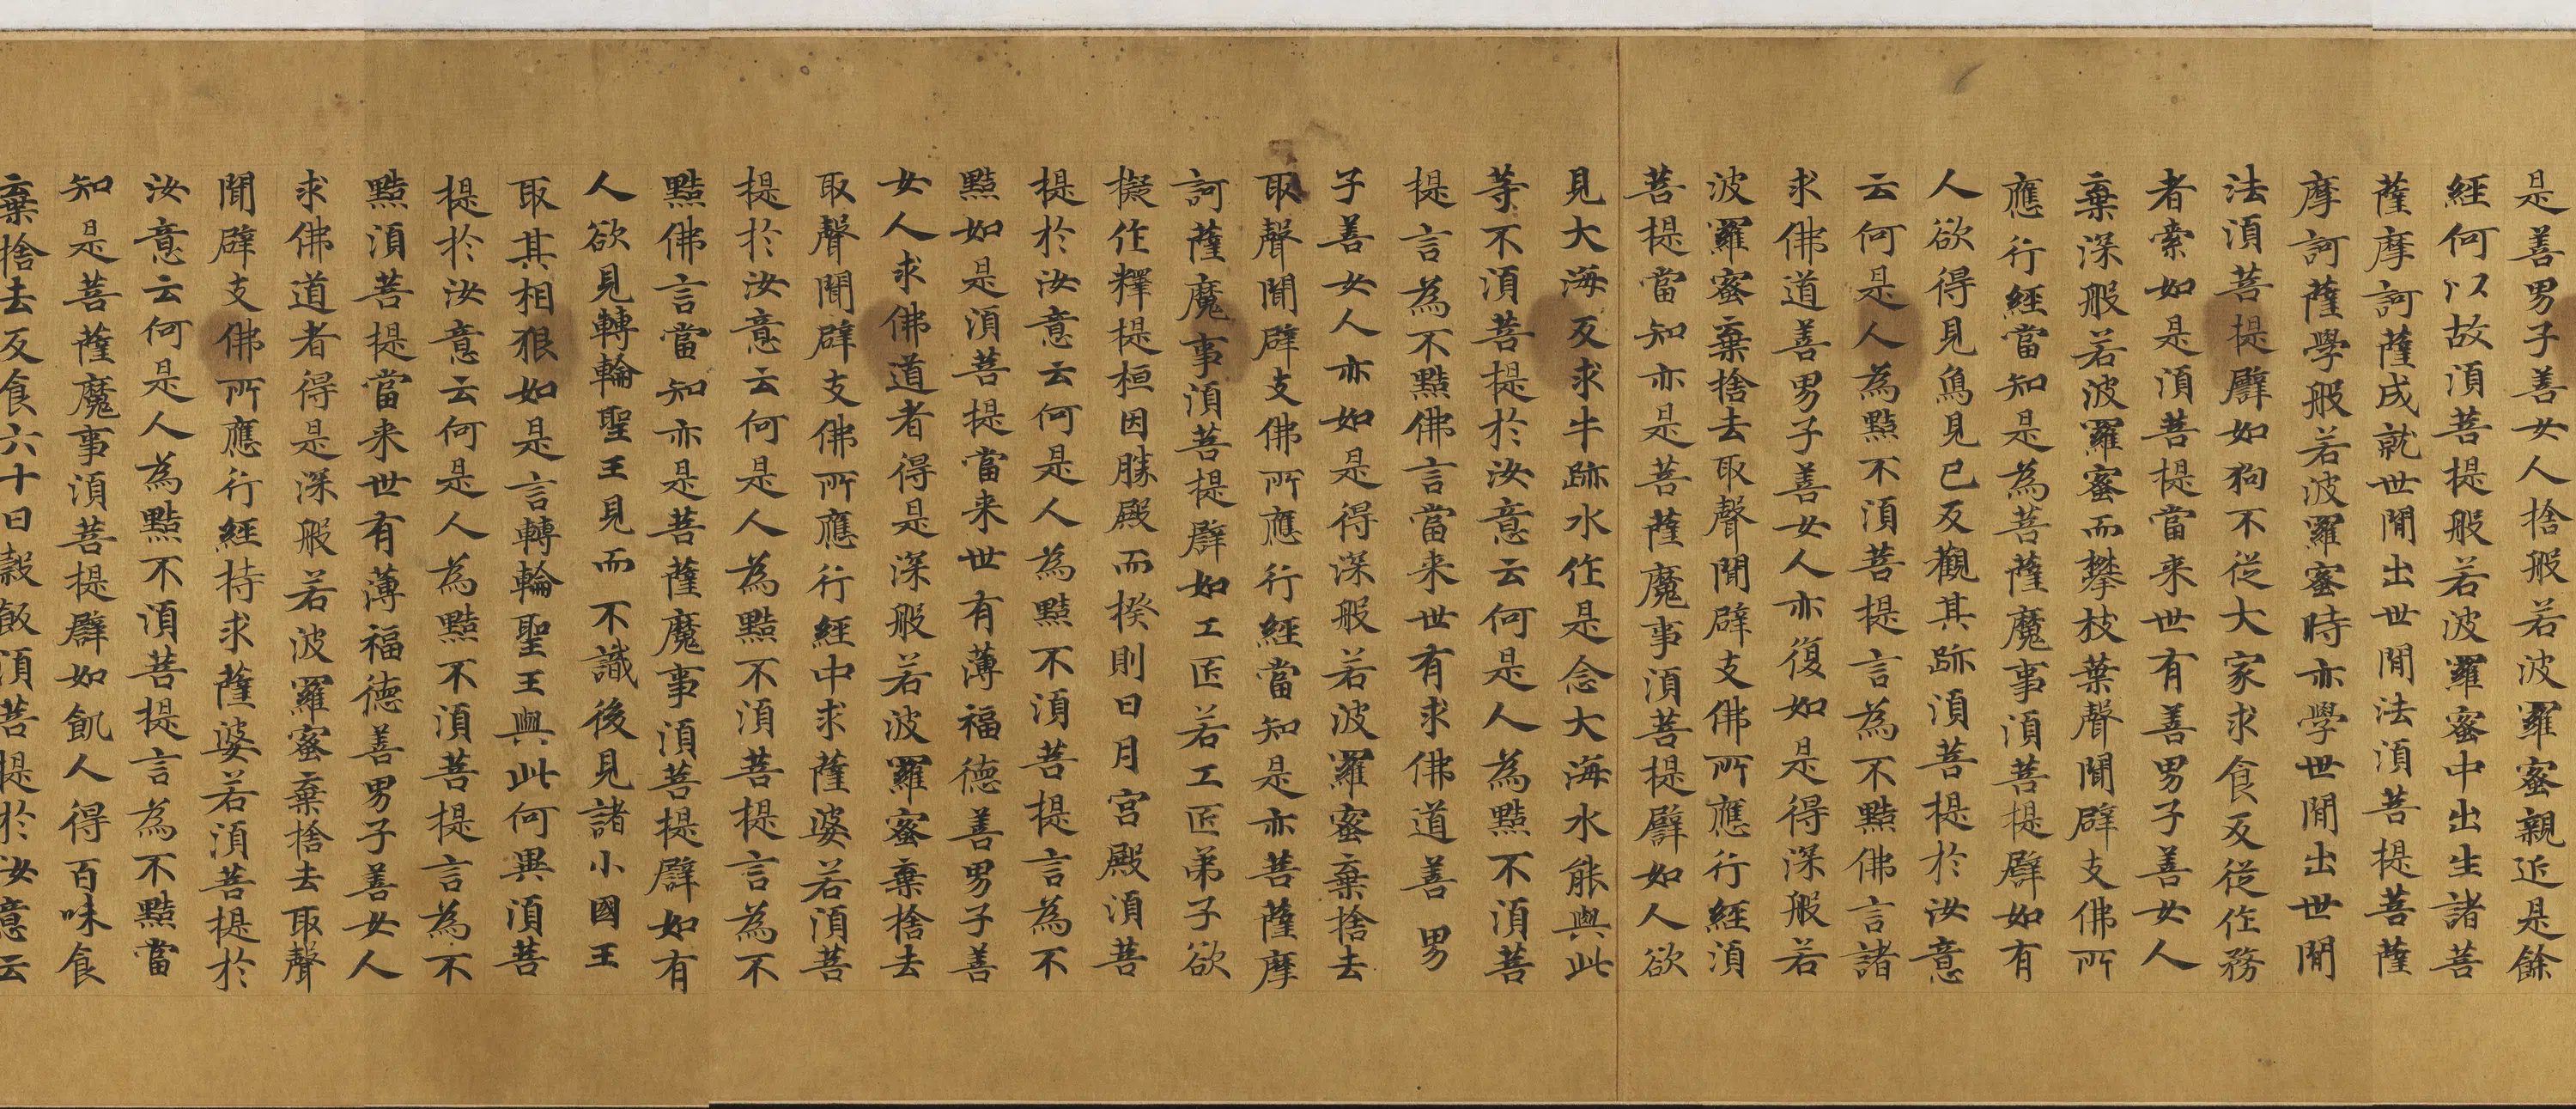 是善男子善女人捨般若波羅蜜親近是餘
經何以故須菩提般若波羅蜜中出生諸菩
薩摩訶薩成就世閒出世閒法須菩提菩薩
摩訶薩學般若波羅蜜時亦學世閒出世閒
法須菩提譬如狗不從大家求食反從作務
者索如是須菩提當来世有善男子善女人
棄深般若波羅蜜而攀枝葉聲聞辟支佛所
應行經當知是為菩薩魔事須菩提譬如有
人欲得見鳥見已反觀其跡須菩提於汝意
云何是人為黠不須菩提言為不黠佛言諸
求佛道善男子善女人亦復如是得深般若
波羅蜜棄捨去取聲聞辟支佛所應行經須
菩提當知亦是菩薩魔事須菩提譬如人欲
見大海反求牛跡水作是念大海水能與此
等不須菩提於汝意云何是人為黠不須菩
提言為不黠佛言當来世有求佛道善男
子善女人亦如是得深般若波羅蜜棄捨去
取聲聞辟支佛所應行經當知是亦菩薩摩
訶薩魔事須菩提譬如工匠若工匠弟子欲
擬作釋提桓因勝殿而揆則日月宮殿須菩
提於汝意云何是人為黠不須菩提言為不
黠如是須菩提當来世有薄福德善男子善
女人求佛道者得是深般若波羅蜜棄捨去
取聲聞辟支佛所應行經中求薩婆若須菩
提於汝意云何是人為黠不須菩提言為不
黠佛言當知亦是菩薩魔事須菩提譬如有
人欲見轉輪聖王見而不識後見諸小國王
取其相狠如是言轉輪聖王與此何異須菩
提於汝意云何是人為黠不須菩提言為不
黠須菩提當来世有薄福德善男子善女人
求佛道者得是深般若波羅蜜棄捨去取聲
聞辟支佛所應行經持求薩婆若須菩提於
汝意云何是人為黠不須菩提言為不黠當
知是菩薩魔事須菩提譬如飢人得百味食
棄捨去反食六十日穀飯須菩提於汝意云